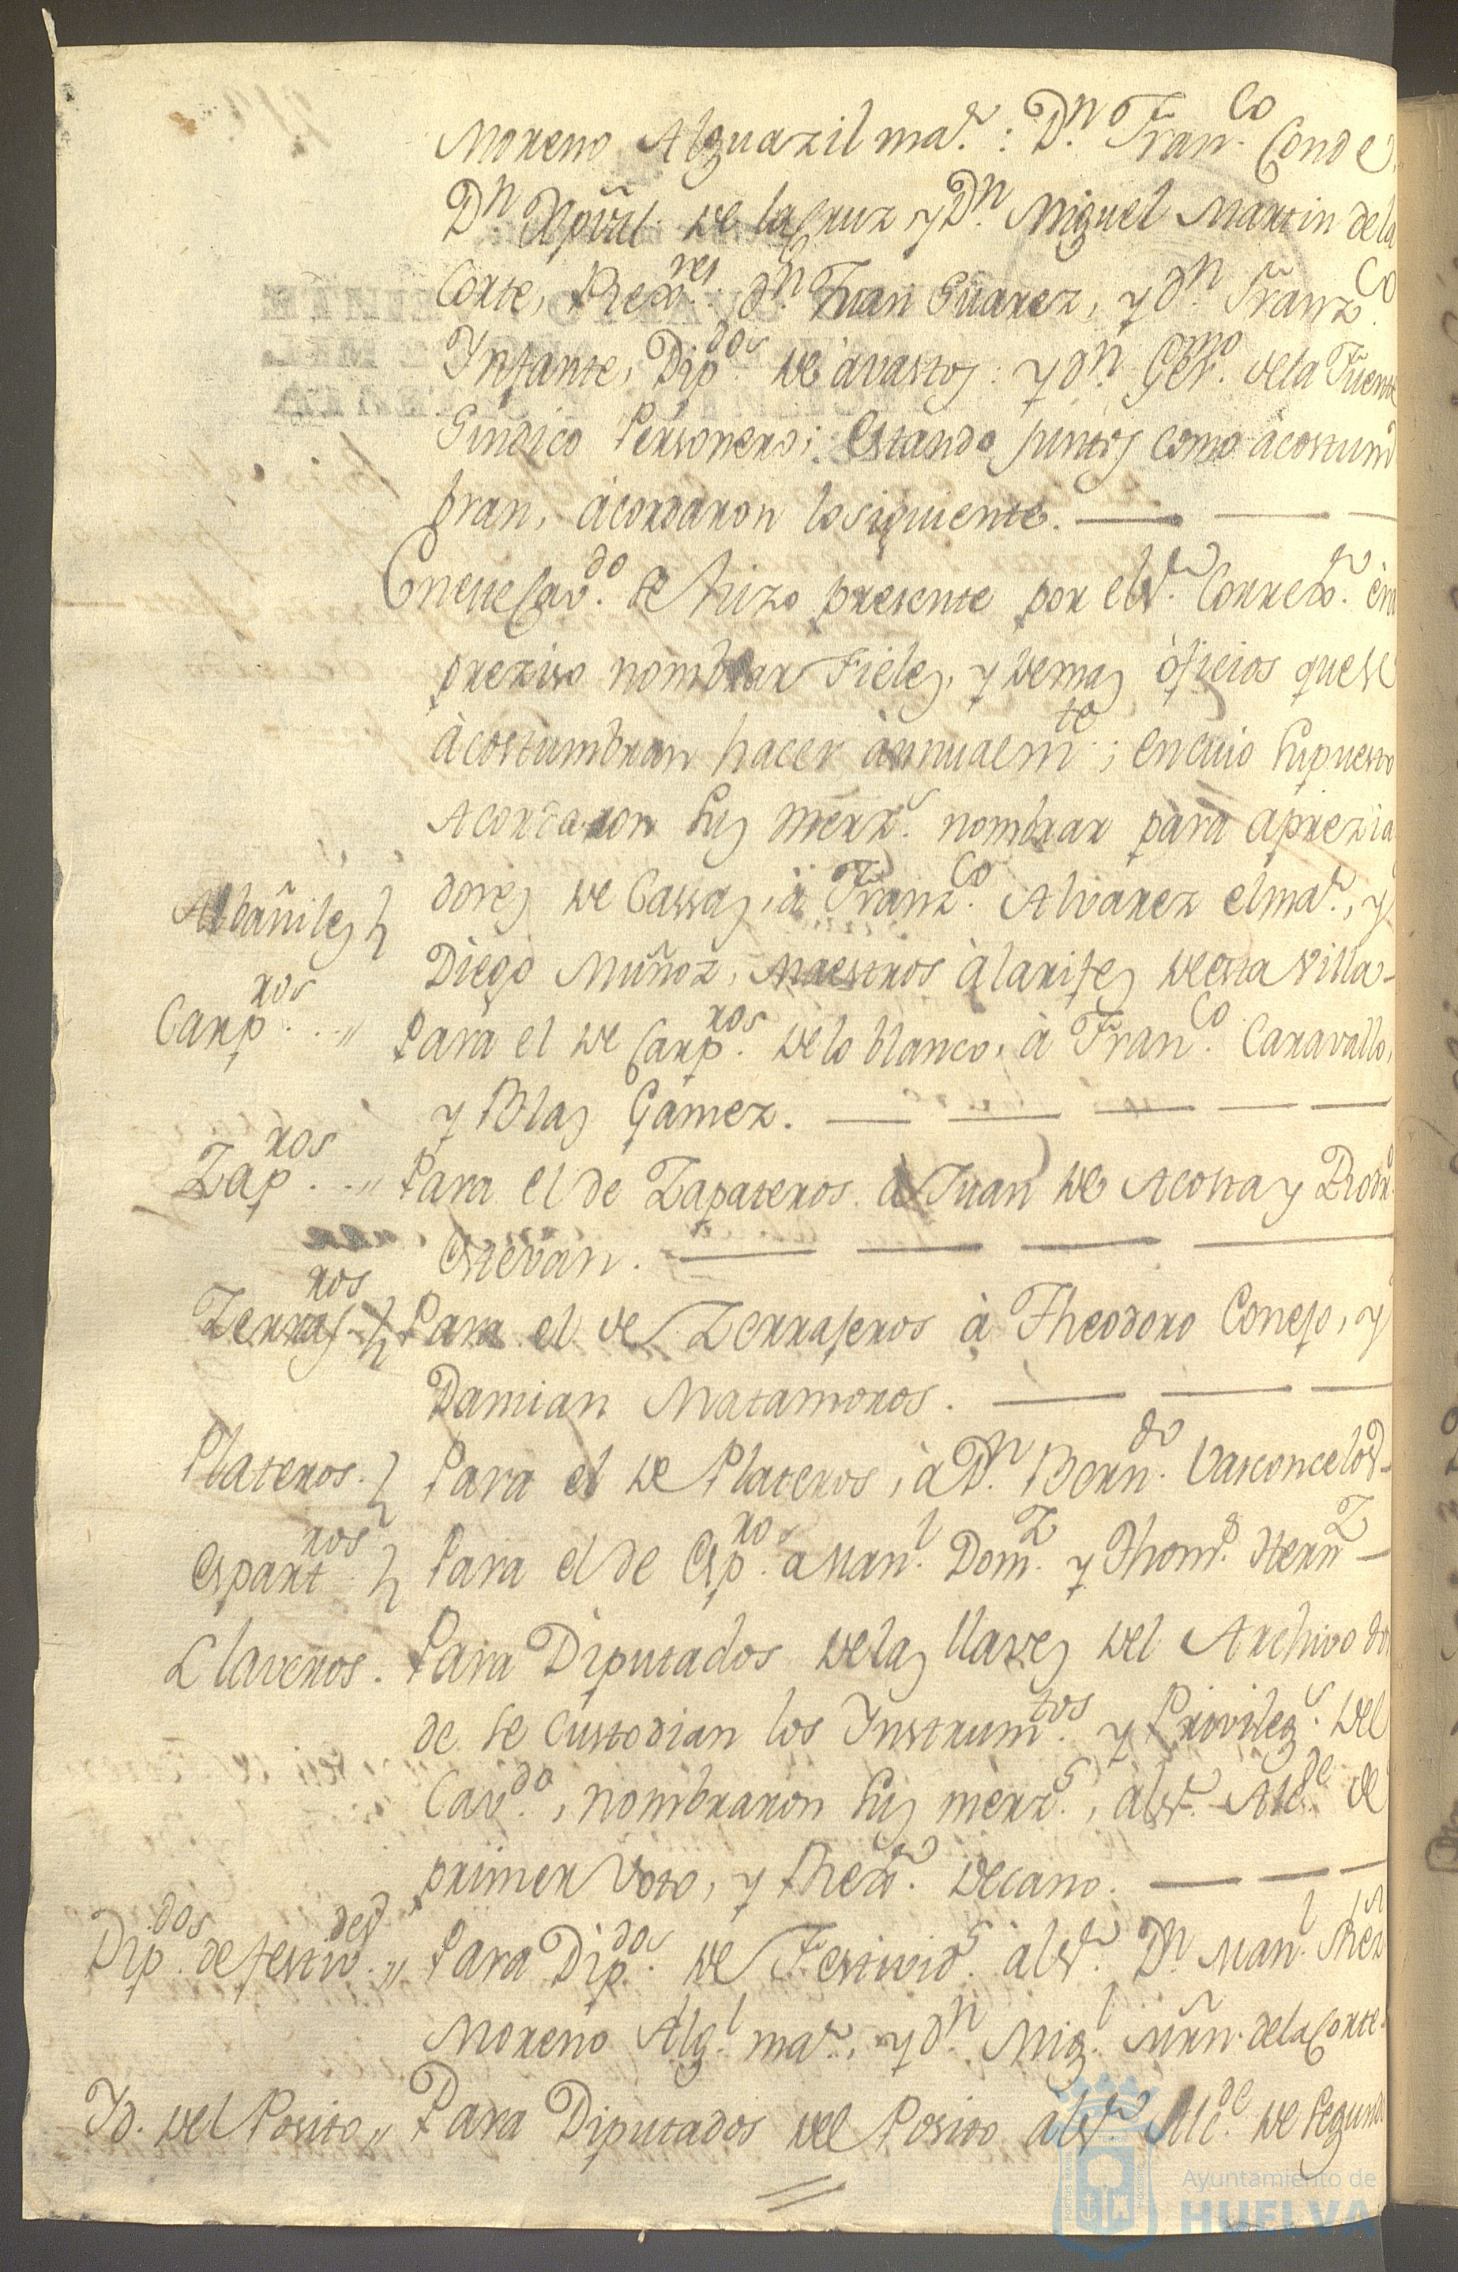 Moreno Alguazil ma.r : D.n Fran.co Conde,
D.n Xpval. de la Cruz y D.n Miguel Martin de la
Corte, Rex.res: d.n Juan Suarez, y d.n Franz.co
Infante, Dip.dos de avastos: y d.n Ger.mo de la Fuente
Sindico Personero; Estando juntos como acostum
bran, acordaron lo siguiente.
En este Cav.do se hizo presente por el S.r Correx.r era
preziso nombrar Fieles, y demas oficios que se
acostumbran hacer annualm.te; en cuio supuesto
Acordaron sus merz.s nombrar para aprezia
Albañiles } dores de Cassas, à Franz.co Alvarez el ma.r, y
Diego Muñoz, Maestros alarifes de esta Villa-
Carp.ros „ Para el de Carp.ros de lo blanco, à Fran.co Caravallo,
y Blas Gamez.
Zap.ros „ Para el de Zapateros à Juan de Acosta y Rodr.
Estevan.
Zerraj.ros } Para el de Zerrajeros à Theodoro Conejo, y
Damian Matamoros.
Plateros. } Para el de Plateros, à D.n Bern.do Vasconcelos-
Espart.ros } Para el de Esp.ros a Man.l Dom.z y Thom.s Hern.z
Llaveros. Para Diputados de las llaves del Archivo don
de se custodian los Instrum.tos y Privileg.s del
Cav.do, nombraron sus merz.s, al S.r Alc.de de
primer Voto, y Rex.r decano.
Dip.dos de festiv.des „ Para Dip.dos de Festivid.s al S.r D.n Man.l
Moreno Alg.l ma.r, y d.n Mig.l Mrn. de la Corte.
Yd. del Posito „ Para Diputados del Posito al S.r Alc.de de segund
Ayuntamiento de
HUELVA